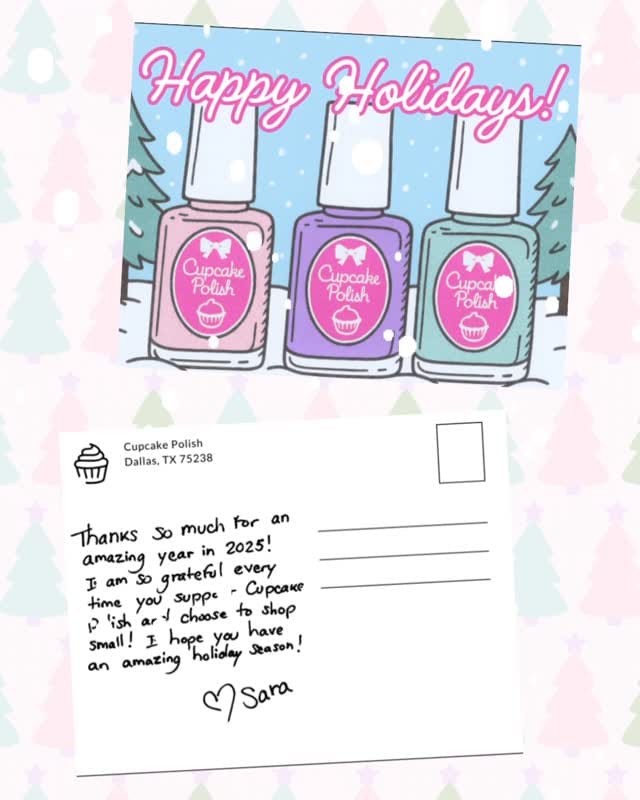 Happy Holidays!
Cupcake
Polish
Cupcake
Polish
Polish
Cupcake Polish
Dallas, TX 75238
Thanks so much for an
amazing year in 2025!
I am so grateful every
time you Cupcake
choose to shop
small! I hope you have
an amazing holiday season!
Sara